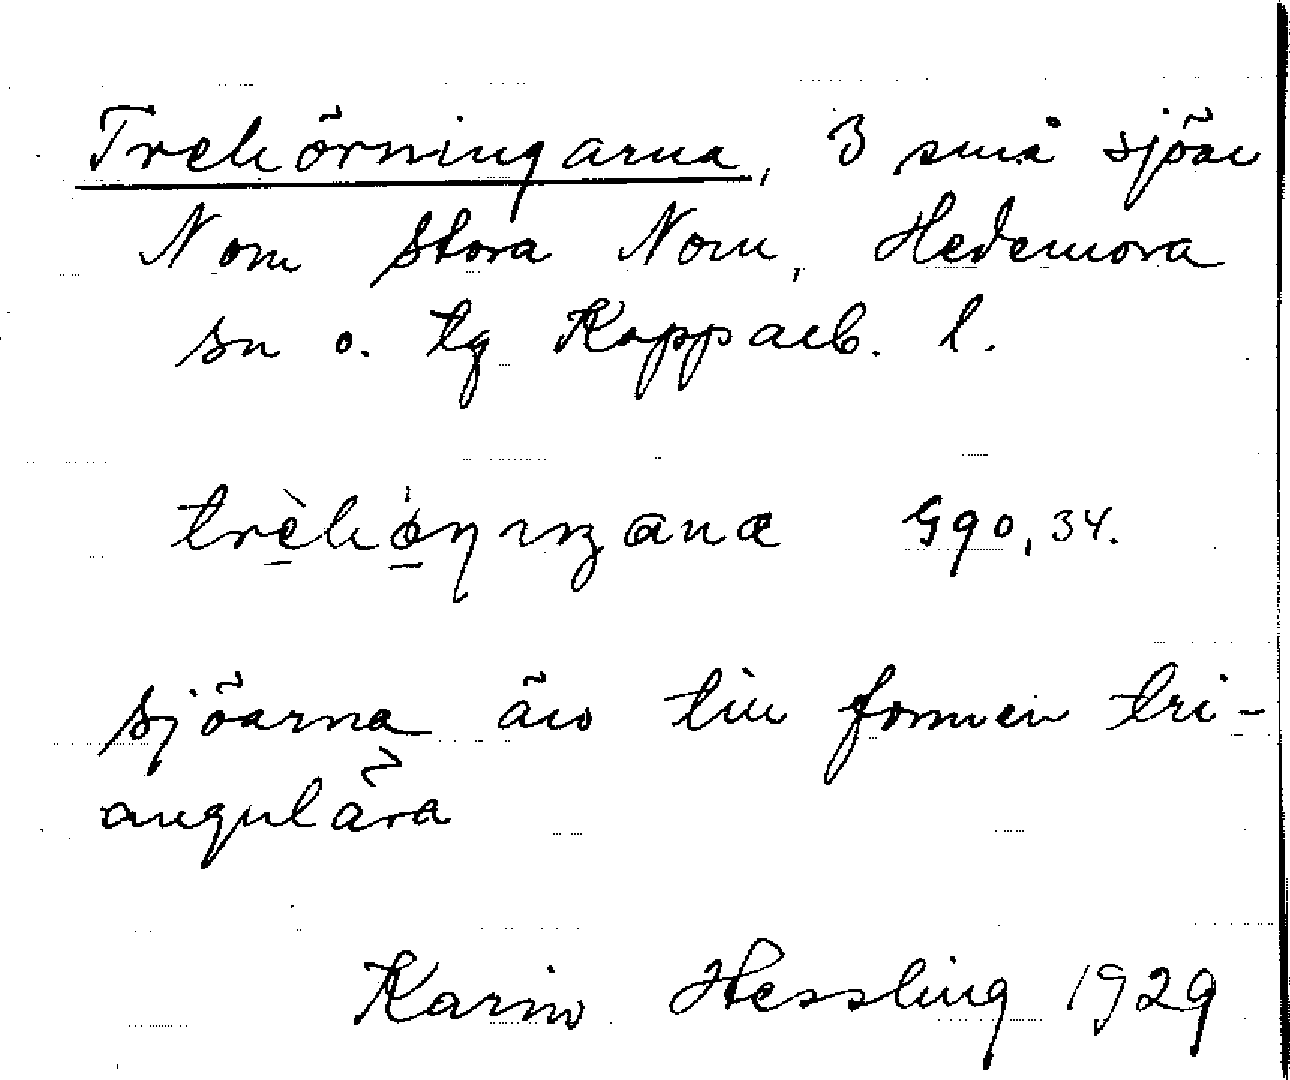 Trehörningarna, 3 små sjöar
Nom Stora Norn, Hedemora
sn o. tg Kopparb. l.
G90, 34.
sjöarna äro till formen tri-
angulära
Karin Hessling 1929